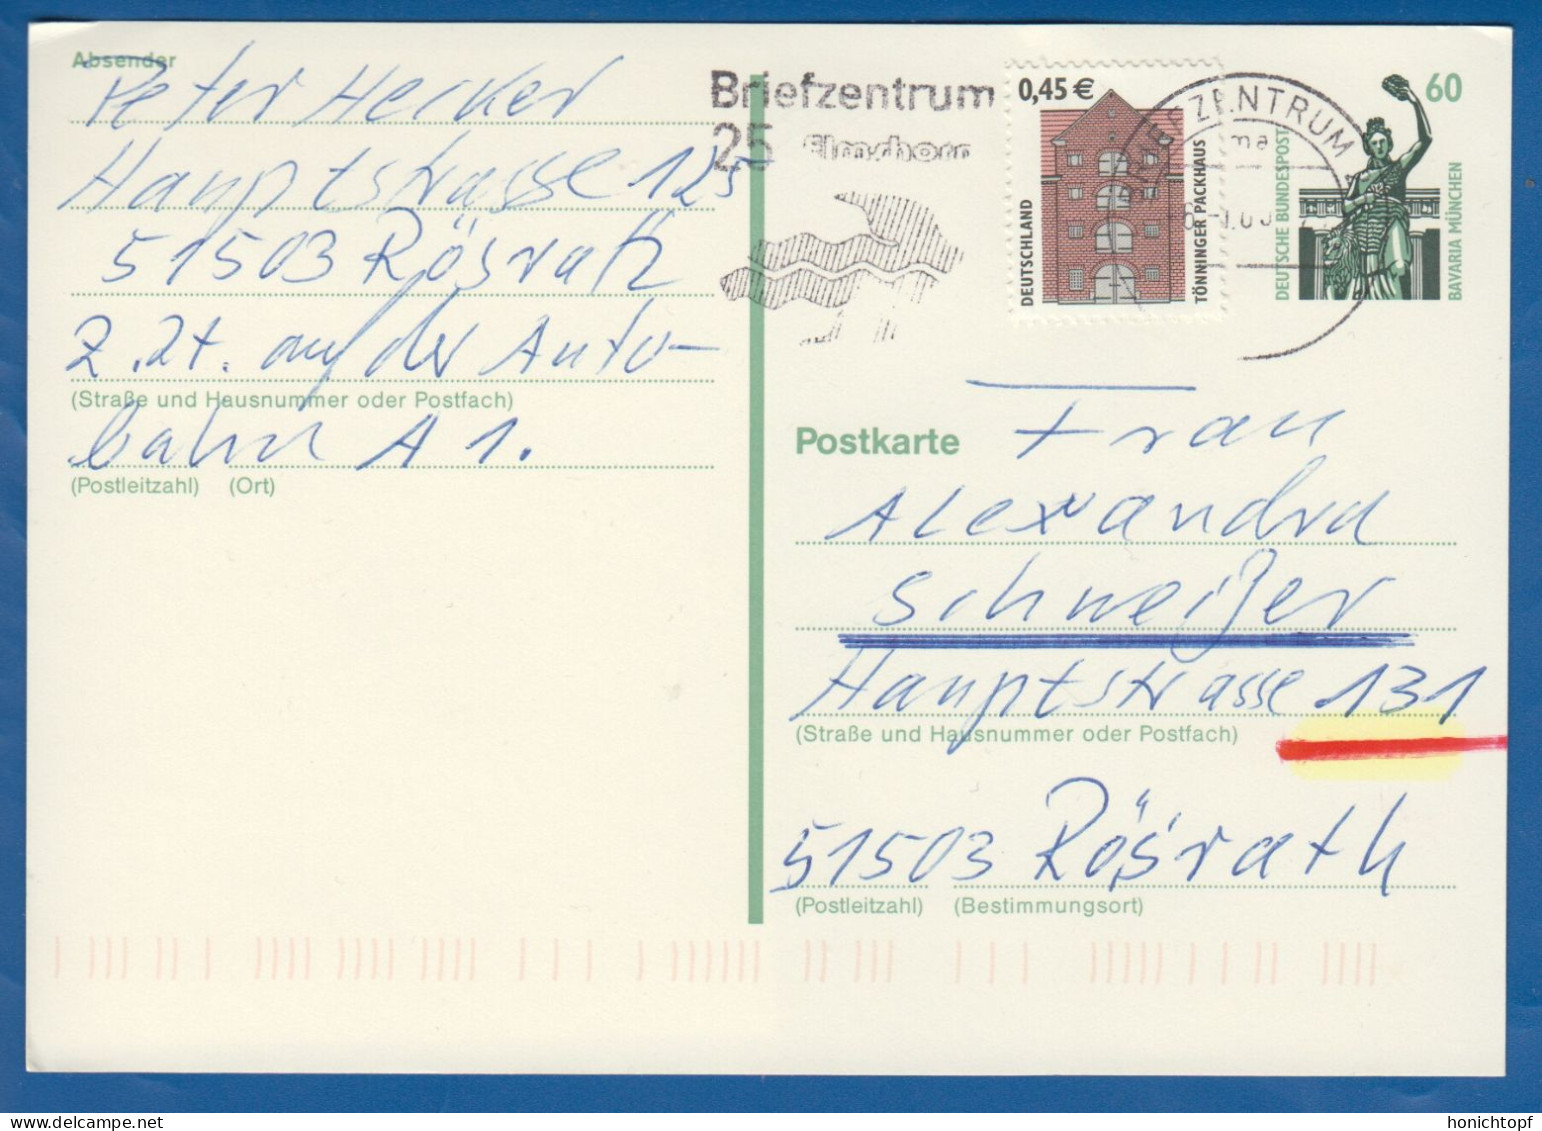 Absender
Peter Hecker
Hauptstrasse 125
51503 Rösrath
Z. Zt. auf der Auto-
(Straße und Hausnummer oder Postfach)
bahn A 1.
(Postleitzahl) (Ort)
Briefzentrum
25 Elmshorn
0,45€
DEUTSCHLAND
TÖNNINGER PACKHAUS
BRIEFZENTRUM
60
DEUTSCHE BUNDESPOST
BAVARIA MÜNCHEN
Postkarte
Frau
Alexandra
Schweißer
Hauptstrasse 131
(Straße und Hausnummer oder Postfach)
51503 Rösrath
(Postleitzahl) (Bestimmungsort)
honichtopf